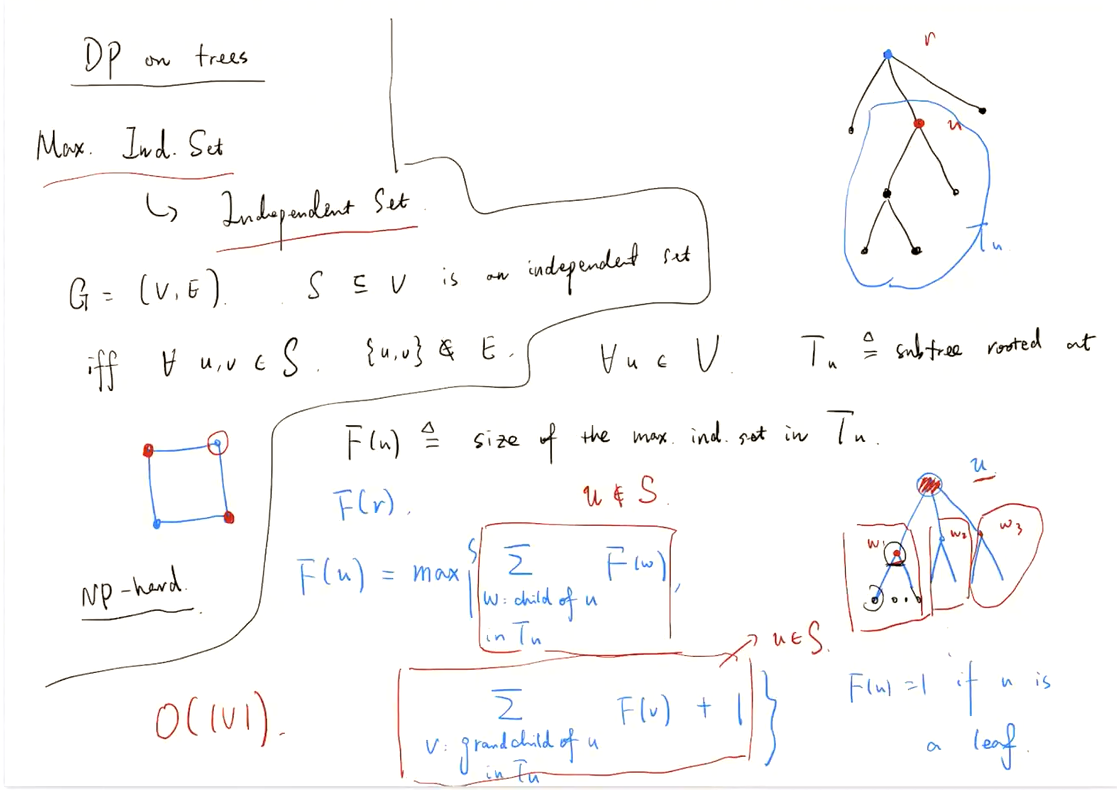 DP on trees
Max. Ind. Set
↳ Independent Set.
G = (V, E). S ⊆ V is an independent set
iff ∀ u,v ∈ S. {u,v} ∉ E.
NP-hard.
r
u
T_u
∀u ∈ V. T_u ≜ subtree rooted at
F(u) ≜ size of the max. ind. set in T_u.
F(r).
u ∉ S.
F(u) = max { Σ F(w),
w: child of u
in T_u
→ u ∈ S.
Σ F(v) + 1 }
v: grandchild of u
in T_u
O(|V|).
u
w₁ w₂ w₃
F(u) = 1 if u is
a leaf.